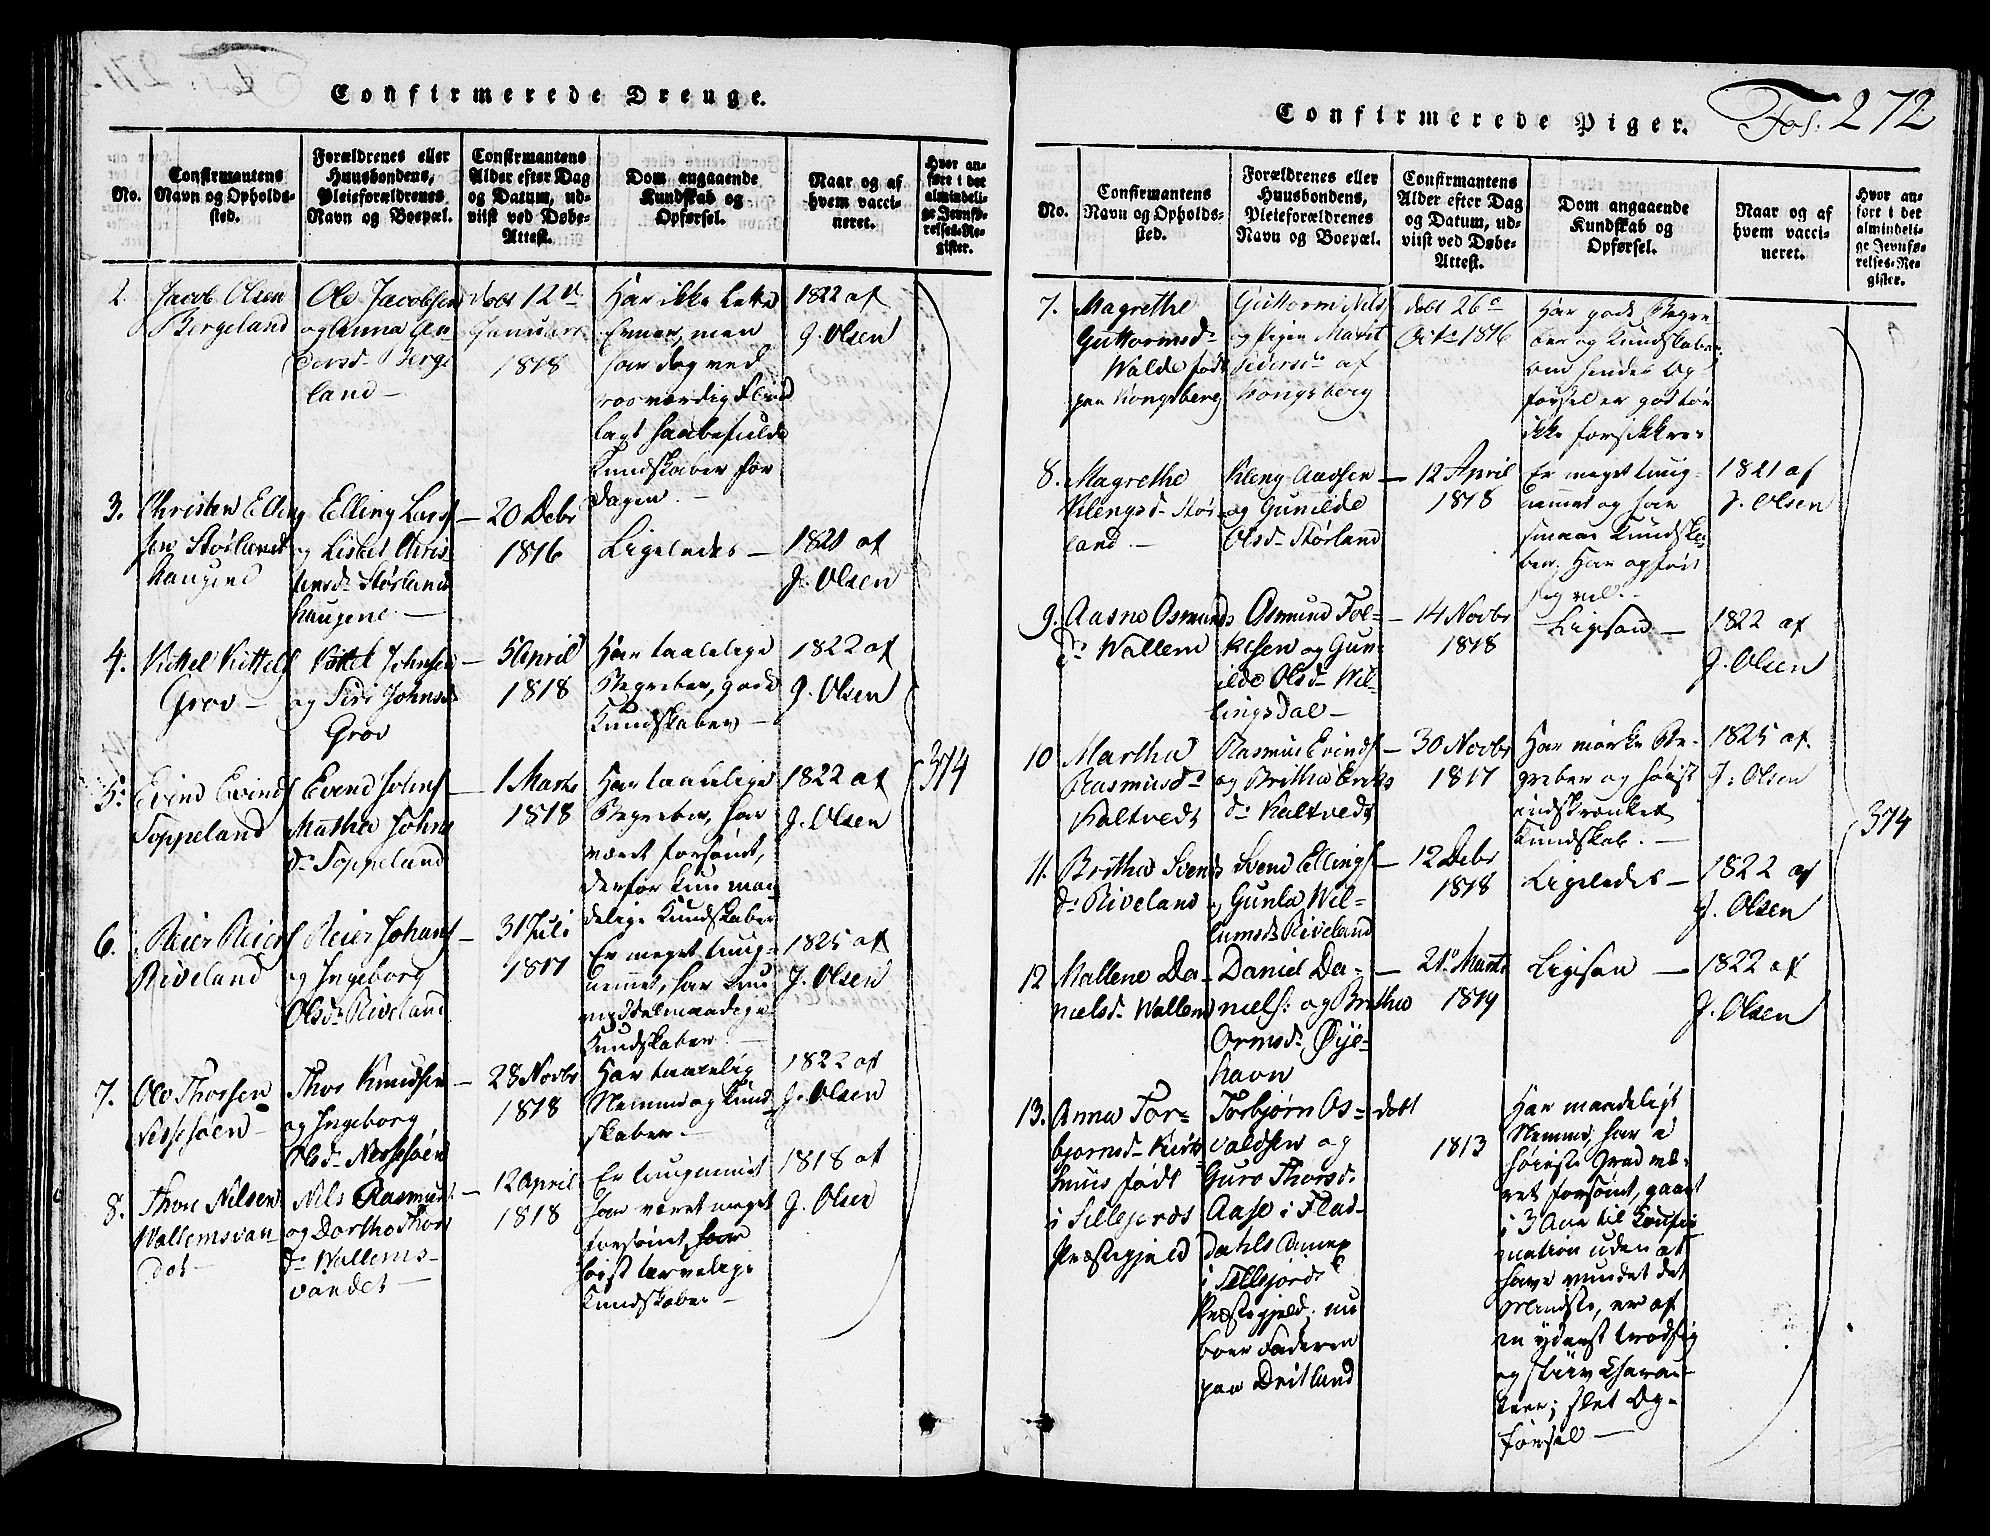 Confirmerede Drenge.
No.
Confirmantens
Navn og Opholds-
sted.
Forældrenes eller
Huusbondens,
Pleieforældrenes
Navn og Boepæl.
Confirmantens
Alder efter Dag
og Datum, ud-
viist ved Døbe-
Attest.
Dom angaaende
Kundskab og
Opførsel.
Naar og af
hvem vacci-
neret.
Hvor an-
ført i det
almindeli-
ge Jevnfø-
relses-Re-
gister.
2.
Jacob Olsen
Bergeland
Ole Jacobsen
og Anna An-
dersd. Berge
land —
døbt 12te
Januari
1818
Har ikke lette
Evner, men
har dog ved
rosværdig Fliid
lagt haabefulde
Kundskaber for
Dagen. —
1822 af
J. Olsen
3.
Christen Elling
sen Størland
haugene
Elling Lars —
og Lisbet Chris-
tensd. Størlands
haugene —
20 Debr
1816
Ligeledes —
1821 af
J. Olsen
4.
Kittel Kittels
Grov —
Kittel Johnsen —
og Siri Johnsd.
Grov
5 April
1818
Har taalelige
Begreber, gode
Kundskaber —
1822 af
J. Olsen
5.
Evind Evinds
Toppeland
Evend Johns —
Martha Johns
d. Toppeland
1 Marts
1818
Har taalelige
Begreber, har
været forsømt,
derfor kun maa
delige Kundskaber
1822 af
J. Olsen
374
6.
Reier Reiers
Riveland
Reier Johans —
og Ingeborg
Olsd. Riveland
31 Juli
1817
Er meget tung-
nemmet, har kun
middelmaadige
Kundskaber —
1825 af
J. Olsen
7.
Ole Thorsen
Nessesøen —
Thor Knudsen —
og Ingeborg
Olsd. Nessesøen
28 Novbr
1818
Har taalelig
Nemme og Kund-
skaber. —
1822 af
J. Olsen
8.
Thore Nilsen
Wallemsvan-
det —
Nils Rasmus —
og Dorthe Thors
d. Wallems-
vandet —
12 April
1818
Er tungnemmet
har været meget
forsømt, har
høist tarvelige
Kundskaber —
1818 af
J. Olsen
Confirmerede Piger.
Fol: 272
No.
Confirmantens
Navn og Opholds-
sted.
Forældrenes eller
Huusbondens,
Pleieforældrenes
Navn og Boepæl.
Confirmantens
Alder efter Dag
og Datum, ud-
viist ved Døbe-
Attest.
Dom angaaende
Kundskab og
Opførsel.
Naar og af
hvem vacci-
neret.
Hvor an-
ført i det
almindeli-
ge Jevnfø-
relses-Re-
gister.
7.
Magrethe
Guttormsd.
Walde født
paa Kongsberg
Guttorm Nils
og Pigen Marit
Pedersd. af
Kongsberg
døbt 26e
1816
Har gode Begre-
ber og Kundskaber
om hendes Op-
førsel er god tør
ikke forsikkres
8.
Magrethe
Klengsd. Stør-
land. —
Kleng Aadsen —
og Gunilde
Olsd. Størland
12 April
1818
Er meget tung-
nemmet og har
smaae Kundska-
ber. Har opført
sig vel. —
1821 af
J. Olsen
9.
Aasne Osmunds
d. Wallem
Osmund Tol- —
kesen og Gun-
ilde Olsd. Wil-
lingsdal —
14 Novbr
1818
Ligesaa —
1822 af
J. Olsen
10
Martha
Rasmusd.
Kaltvedt
Rasmus Evinds —
og Britha Eriks
d. Kaltvedt
30 Novbr
1817
Har mørke Be-
greber og høist
indskrænket
Kundskab. —
1825 af
J. Olsen
374
11.
Britha Svends
d. Riveland
Svend Ellings —
og Gunla Wil-
lumsd. Riveland
12 Debr
1818
Ligeledes —
1822 af
J. Olsen
12
Mallene Da-
nielsd. Wallem
Daniel Da- —
niels: og Britha
Ormsd. Øye-
havn
21 Marts
1819
Ligesaa —
1822 af
J. Olsen
13.
Anna Tor-
bjørnsd.
født
i Sillejords
Præstegjeld
Torbjørn Os-
valdsen og
Guro Thorsd.
Aase i Flad-
dahls Annex
i Sillejords
Præstegjeld, nu
boer Faderen
paa Deitland
døbt
1813
Har maadeligt
Nemme, har i
høieste Grad væ-
ret forsømt, gaaet
i 3 Aar til Confir-
mation uden at
have vundet det
Mindste, er af
en yderst trodsig
og skiev Charac-
teer; slet Op-
førsel —